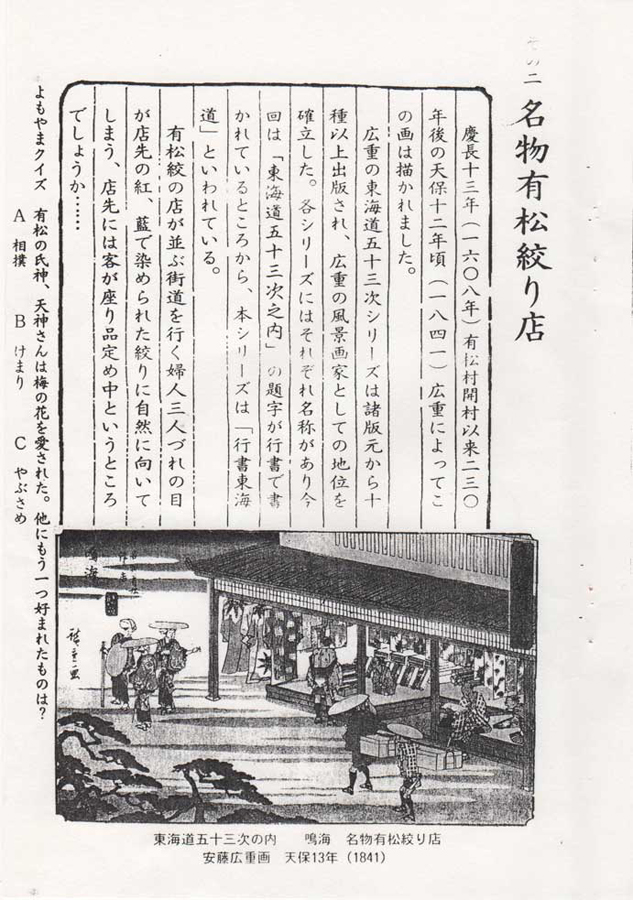 その二 名物有松絞り店
慶長十三年(一六〇八年)有松村開村以来二三〇
年後の天保十二年頃(一八四一)広重によってこ
の画は描かれました。
広重の東海道五十三次シリーズは諸版元から十
種以上出版され、広重の風景画家としての地位を
確立した。各シリーズにはそれぞれ名称があり今
回は「東海道五十三次之内」の題字が行書で書
かれているところから、本シリーズは「行書東海
道」といわれている。
有松絞の店が並ぶ街道を行く婦人三人づれの目
が店先の紅、藍で染められた絞りに自然に向いて
しまう、店先には客が座り品定め中というところ
でしょうか……
よもやまクイズ 有松の氏神、天神さんは梅の花を愛された。他にもう一つ好まれたものは?
A 相撲 B けまり C やぶさめ
鳴海
広重画
東海道五十三次の内 鳴海 名物有松絞り店
安藤広重画 天保13年(1841)